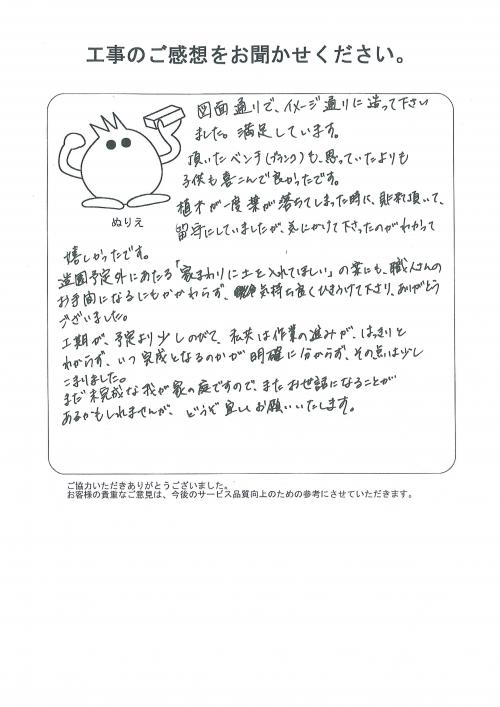 工事のご感想をお聞かせください。
図面通りで、イメージ通りに造って下さい
ました。満足しています。
頂いたベンチ(ブランコ)も、思っていたよりも
子供も喜こんで良かったです。
植木が一度葉が落ちてしまった時に、貼れ頂いて、
留守にしていましたが、気にかけて下さったのがわかって
ぬりえ
嬉しかったです。
造園予定外にあたる「家まわりに土を入れてほしい」の案にも、職人さんの
お手間になるにもかかわらず、気持ち良くひきうけて下さり、ありがとう
ございました。
工期が、予定より少しのびて、私共は作業の進みが、はっきりと
わからず、いつ完成となるのかが明確に分からず、その点は少し
こまりました。
まだ未完成な我が家の庭ですので、またおせ話になることが
あるかもしれませんが、どうぞ宜しくお願いいたします。
ご協力いただきありがとうございました。
お客様の貴重なご意見は、今後のサービス品質向上のための参考にさせていただきます。